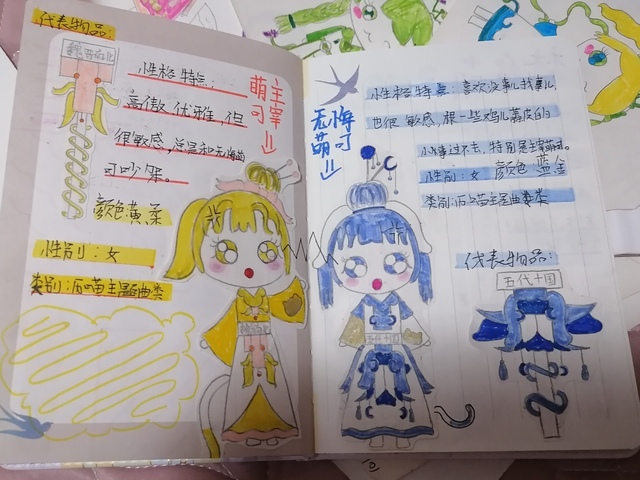 代表物品:
魏晋南北
性格特点:
高傲优雅,但
很敏感,总温和无悔萌
可吵架。
萌主宰
可
颜色黄柔
性别:女
类别:后喵主题曲类
无悔可
萌
性格特点:喜欢没事儿找事儿,
也很敏感,根一些鸡儿蒜皮的
小事过不去,特别是主宰萌可。
性别:女 颜色 蓝金
类别:后喵主题曲类
代表物品:
五代十国
五代十国